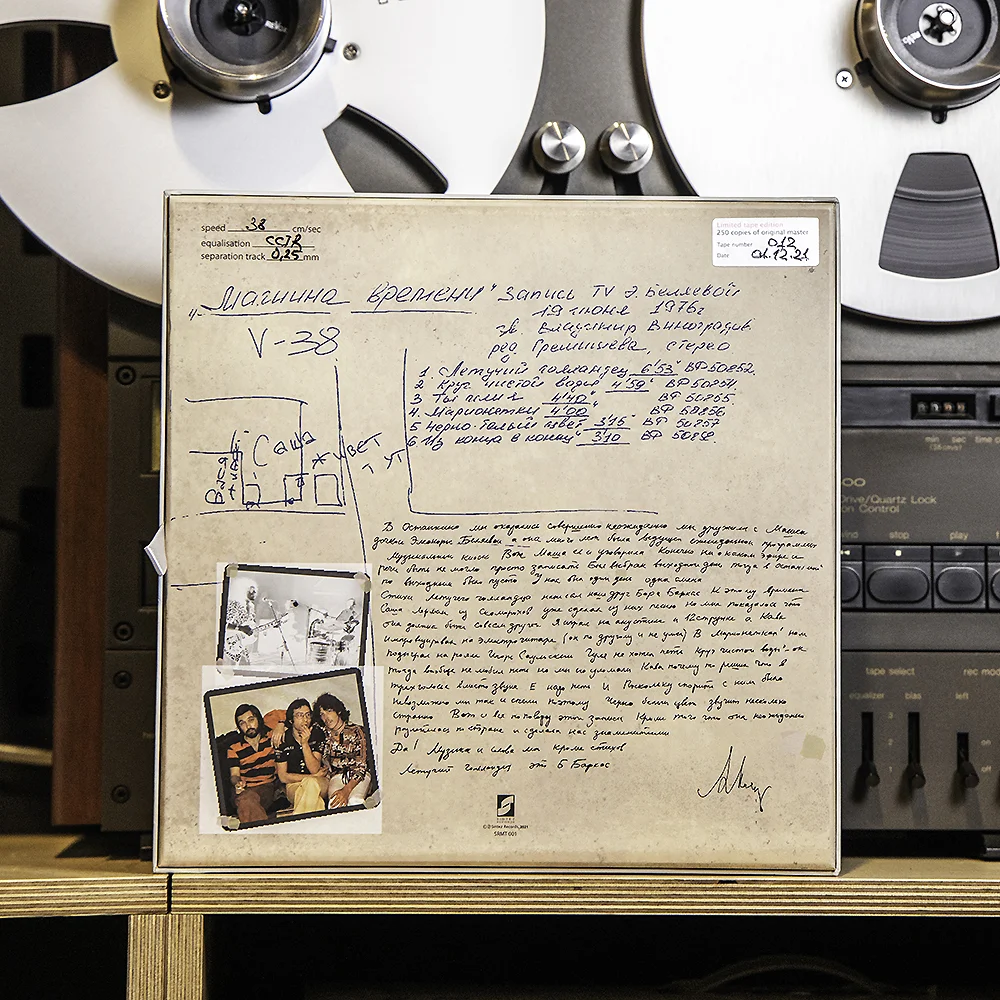 speed 38 cm/sec
equalisation CCIR
separation track 0,25 mm
Limited tape edition
250 copies of original master
Tape number 012
Date 01.12.21
"Машина времени" Запись TV Э. Беляевой
19 июня 1976г
V-38
зв. Владимир Виноградов
ред Гремышева, стерео
1 Летучий голландец 6'53" ВР50852.
2 Круг чистой воды 4'59"
3 Ты или я 4'40"
4. Марионетки 4'00"
5 Черно-белый цвет 3'15" ВР 50857
6 Из конца в конец 3'10
Саша
живет
тут
Вася
тут
В Останкино мы оказались совершенно неожиданно мы дружили с Машей
дочкой Элеоноры Беляевой а она много лет была ведущей ежедневной программы
Музыкальный киоск Вот Маша ее и уговорила Конечно ни о каком эфире и
речи быть не могло просто записать Был выбран выходной день тогда в Останкино
по выходным было пусто У нас был один день одна смена
Стихи Летучего голландца написал наш друг Боря Баркас К этому времени
Саша Лерман из Скоморохов уже сделал из них песню но мне показалось что
она должна быть совсем другой Я играл на акустике и 12струнке а Кава
импровизировал на электрогитаре (он по другому и не умел) В Марионетках нам
подыграл на рояле Игорь Саульский Гуля не хотел петь Круг чистой воды - он
тогда вообще не любил петь но мы его уломали Кава почему то решил что в
трехголосье вместо звука Е надо петь И Поскольку спорить с ним было
невозможно мы так и спели поэтому Черно белый цвет звучит несколько
странно Вот и все по поводу этой записи Кроме того что она неожиданно
разлетелась по стране и сделала нас знаменитыми
Да! Музыка и слова мои кроме стихов
Летучий голландец это Б Баркас
© ℗ Sintez Records, 2021
SRMT 001
Drive/Quartz Lock
on Control
stop
play
tape select
rec mod
equalizer
bias
left